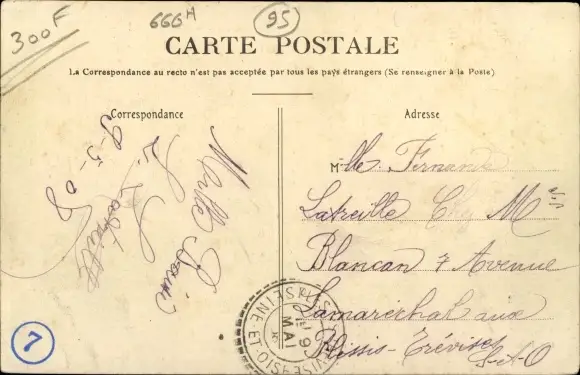 300F
666A
95
CARTE POSTALE
La Correspondance au recto n'est pas acceptée par tous les pays étrangers (Se renseigner à la Poste)
Correspondance
Adresse
9-5-08
Mlle Fernande
Latreille Chez M
Blancan 7 Avenue
Lamaréchal aux
Plessis-Trévises
S-et-O
MAI
SEINE-ET-OISE
7